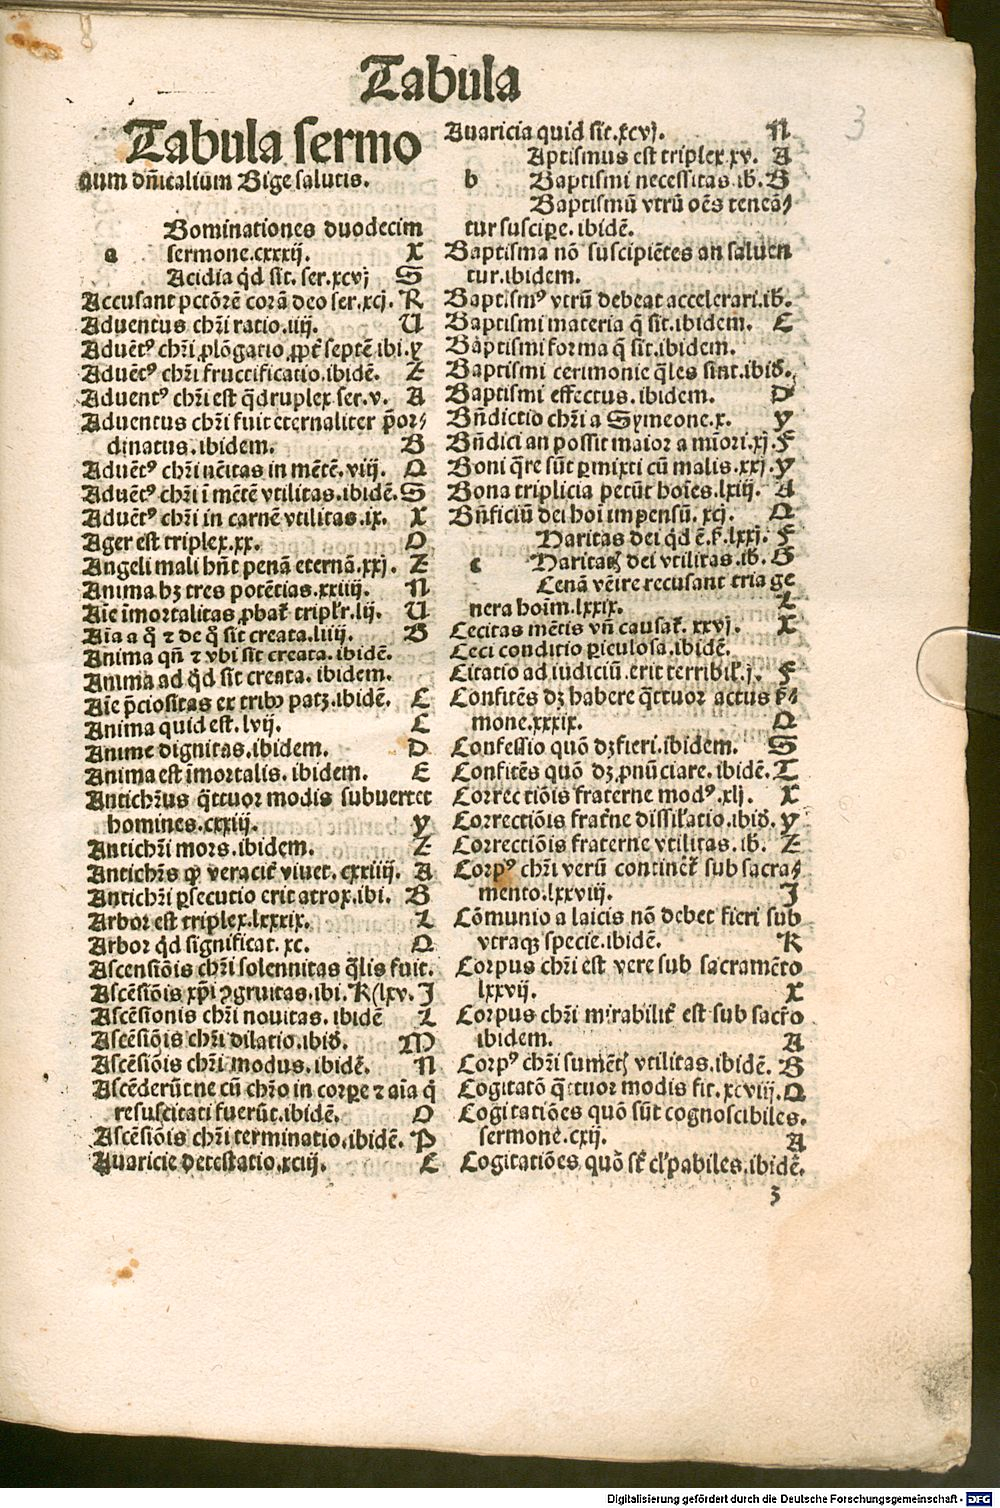 Tabula
3
Tabula sermo
num dñicalium Bige salutis.
Bominationes duodecim
a sermone.cxxxij. X
Acidia qd sit. ser.xcvj S
Accusant pctōrē corā deo ser.xcj. R
Aduentus chr̄i ratio.iiij. U
Aduēt⁹ chr̄i ꝓlōgatio ꝓpt̄ septē ibi.y
Aduēt⁹ chr̄i fructificatio.ibidē. Z
Aduent⁹ chr̄i est q̄druplex ser.v. A
Aduentus chr̄i fuit eternaliter p̄or⸗
dinatus.ibidem. B
Aduēt⁹ chr̄i uēitas in mētē.viij. Q
Aduēt⁹ chr̄i ī mētē vtilitas.ibidē. S
Aduēt⁹ chr̄i in carnē vtilitas.ix. X
Ager est triplex.xx. O
Angeli mali hn̄t penā eternā.xxj. Z
Anima hꝫ tres potētias.xxiiij. N
Aīe īmortalitas ꝓbat̄ tripl̄r.lij. U
Aīa a q̄ ⁊ de q̄ sit creata.liiij. B
Anima qn̄ ⁊ vbi sit creata.ibidē.
Anima ad q̄d sit creata.ibidem.
Aīe p̄ciositas ex tribꝫ patꝫ.ibidē. C
Anima quid est.lvij. C
Anime dignitas.ibidem. D
Anima est īmortalis.ibidem. E
Antichr̄us q̄ttuor modis subuertet
homines.cxxiij. y
Antichr̄i mors.ibidem. Z
Antichr̄s ꝙ veracit̄ viuet.cxxiiij. A
Antichr̄i ꝑsecutio erit atrox.ibi. B
Arbor est triplex.lxxxix. L
Arbor q̄d significat.xc. Q
Ascensiōis chr̄i solennitas q̄lis fuit.
Ascēsiōis xp̄i ꝯgruitas.ibi.K(lxv. I
Ascēsionis chr̄i nouitas.ibidē L
Ascēsiōis chr̄i dilatio.ibid̄. M
Ascēsiōis chr̄i modus.ibidē. N
Ascēderūt ne cū chr̄o in corꝑe ⁊ aīa q̄
resuscitati fuerūt.ibidē. O
Ascēsiōis chr̄i terminatio.ibidē. P
Auaricie detestatio.xciij. C
Auaricia quid sit.xcvj. N
Aptismus est triplex.xv. A
b Baptismi necessitas.ib̄. B
Baptismū vtrū oēs teneā⸗
tur suscipe.ibidē.
Baptisma nō suscipiētes an saluen
tur.ibidem.
Baptism⁹ vtrū debeat accelerari.ib̄.
Baptismi materia q̄ sit.ibidem. C
Baptismi forma q̄ sit.ibidem.
Baptismi cerimonie q̄les sint.ibid̄.
Baptismi effectus.ibidem. D
Bn̄dictio chr̄i a Symeone.x. y
Bn̄dici an possit maior a mīori.xj. F
Boni q̄re sūt ꝑmixti cū malis.xxj. y
Bona triplicia petūt hoīes.lxiij. A
Bn̄ficiū dei hoī impensū.xcj. Q
Haritas dei q̄d ē.k̄.lxxj. F
c Haritatꝫ dei vtilitas.ib̄. G
Cenā vēire recusant tria ge
nera hoīm.lxxix. L
Cecitas mētis vn̄ causat̄.xxvj. X
Ceci conditio ꝑiculosa.ibidē.
Citatio ad iudiciū.erit terribil̄.j. F
Confitēs dꝫ habere q̄ttuor actus ẜ⸗
mone.xxxix. Q
Confessio quō dꝫ fieri.ibidem. S
Confitēs quō dꝫ ꝓnūciare.ibidē. T
Correctiōis fraterne mod⁹.xlj. X
Correctiōis frat̄ne dissil̄atio.ibid̄. y
Correctiōis fraterne vtilitas.ib̄. Z
Corp⁹ chr̄i verū continēt̄ sub sacra⸗
mento.lxxviij. I
Cōmunio a laicis nō debet fieri sub
vtraqꝫ specie.ibidē. K
Corpus chr̄i est vere sub sacramēto
lxxvij. X
Corpus chr̄i mirabilit̄ est sub sacr̄o
ibidem. A
Corp⁹ chr̄i sumētꝫ vtilitas.ibidē. B
Cogitatō q̄ttuor modis fit.xcviij. Q
Cogitatiōes quō sūt cognoscibiles.
sermone.cxij. A
Cogitatiōes quō st̄ cl̄pabiles.ibidē.
3
Digitalisierung gefördert durch die Deutsche Forschungsgemeinschaft - DFG